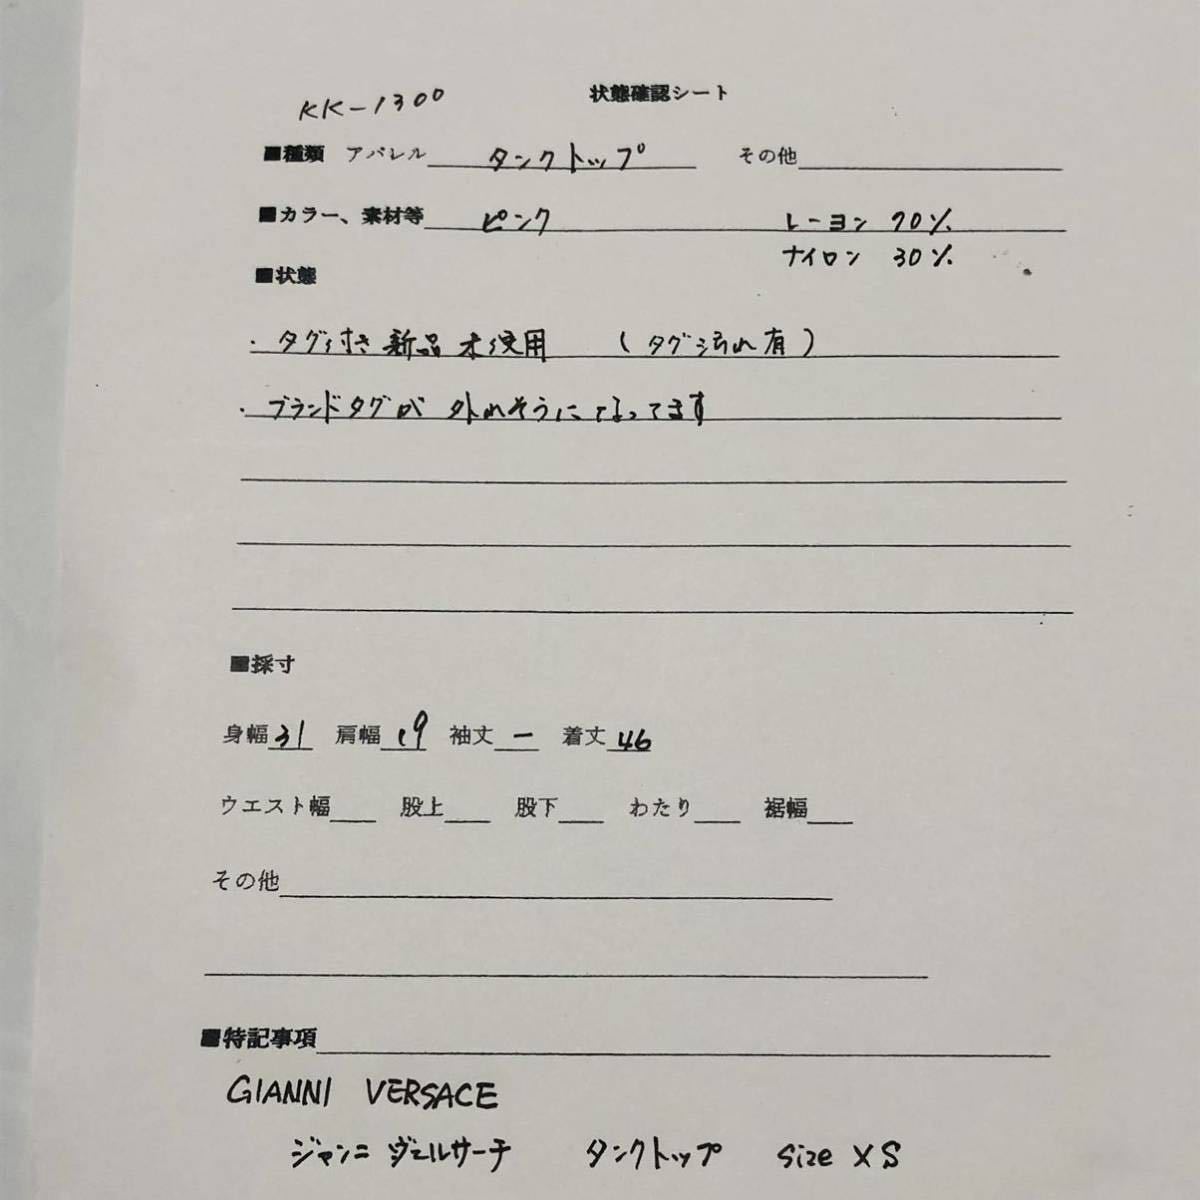 KK-1300 状態確認シート
■種類 アパレル タンクトップ その他
■カラー、素材等 ピンク レーヨン 70%
ナイロン 30%
■状態
・タグ付き新品未使用 (タグ汚れ有)
・ブランドタグが外れそうになってます
■採寸
身幅 31 肩幅 19 袖丈 ー 着丈 46
ウエスト幅 股上 股下 わたり 裾幅
その他
■特記事項
GIANNI VERSACE
ジャンニ ヴェルサーチ タンクトップ size XS